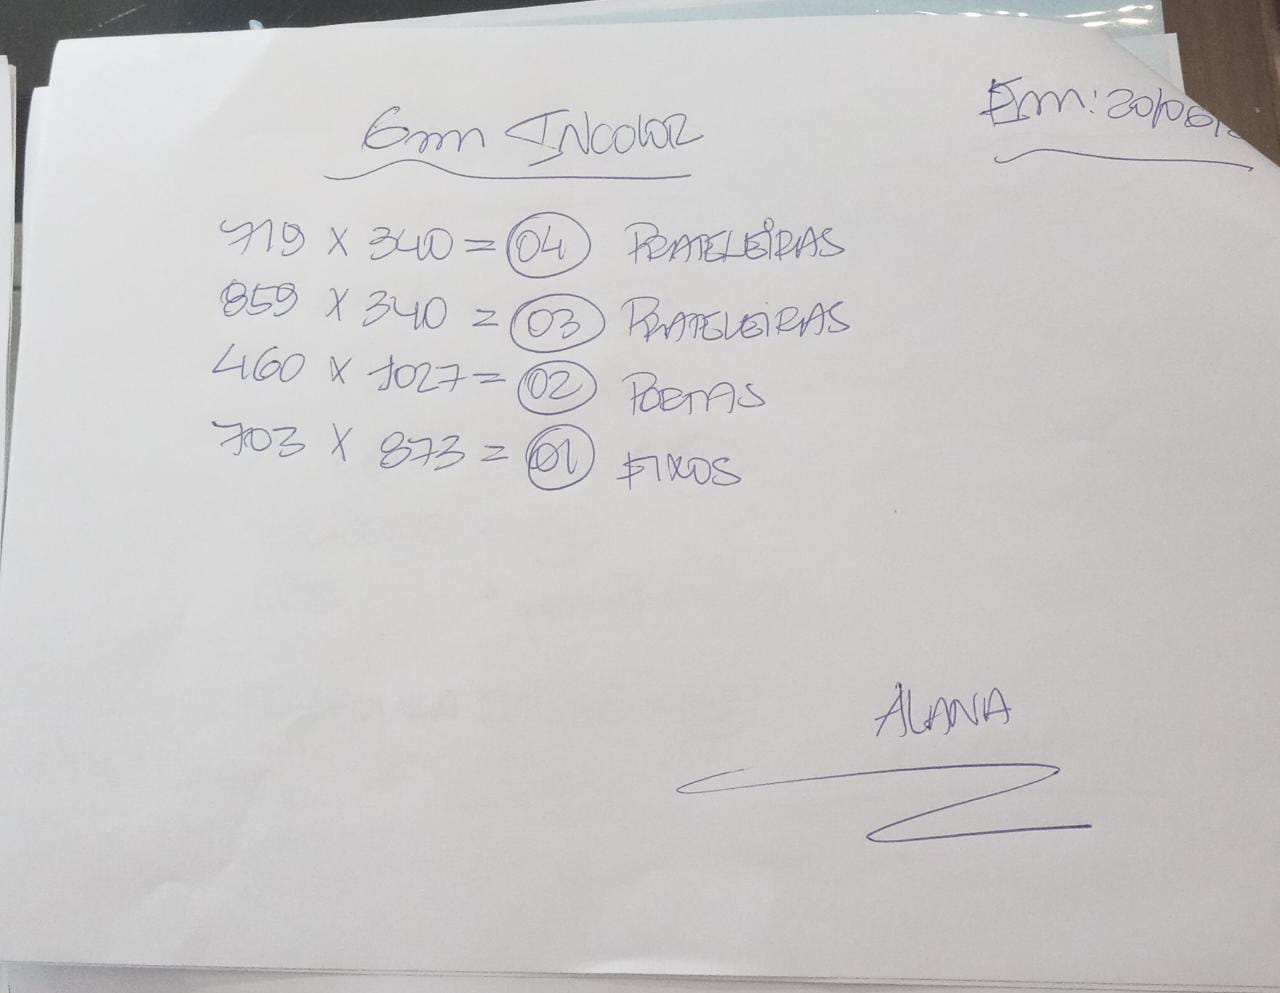 6mm INCOLOR
Em: 20/06/
719 X 340 = 04 PRATELEIRAS
859 X 340 = 03 PRATELEIRAS
460 X 1027 = 02 PORTAS
703 X 873 = 01 FIXOS
ALANA